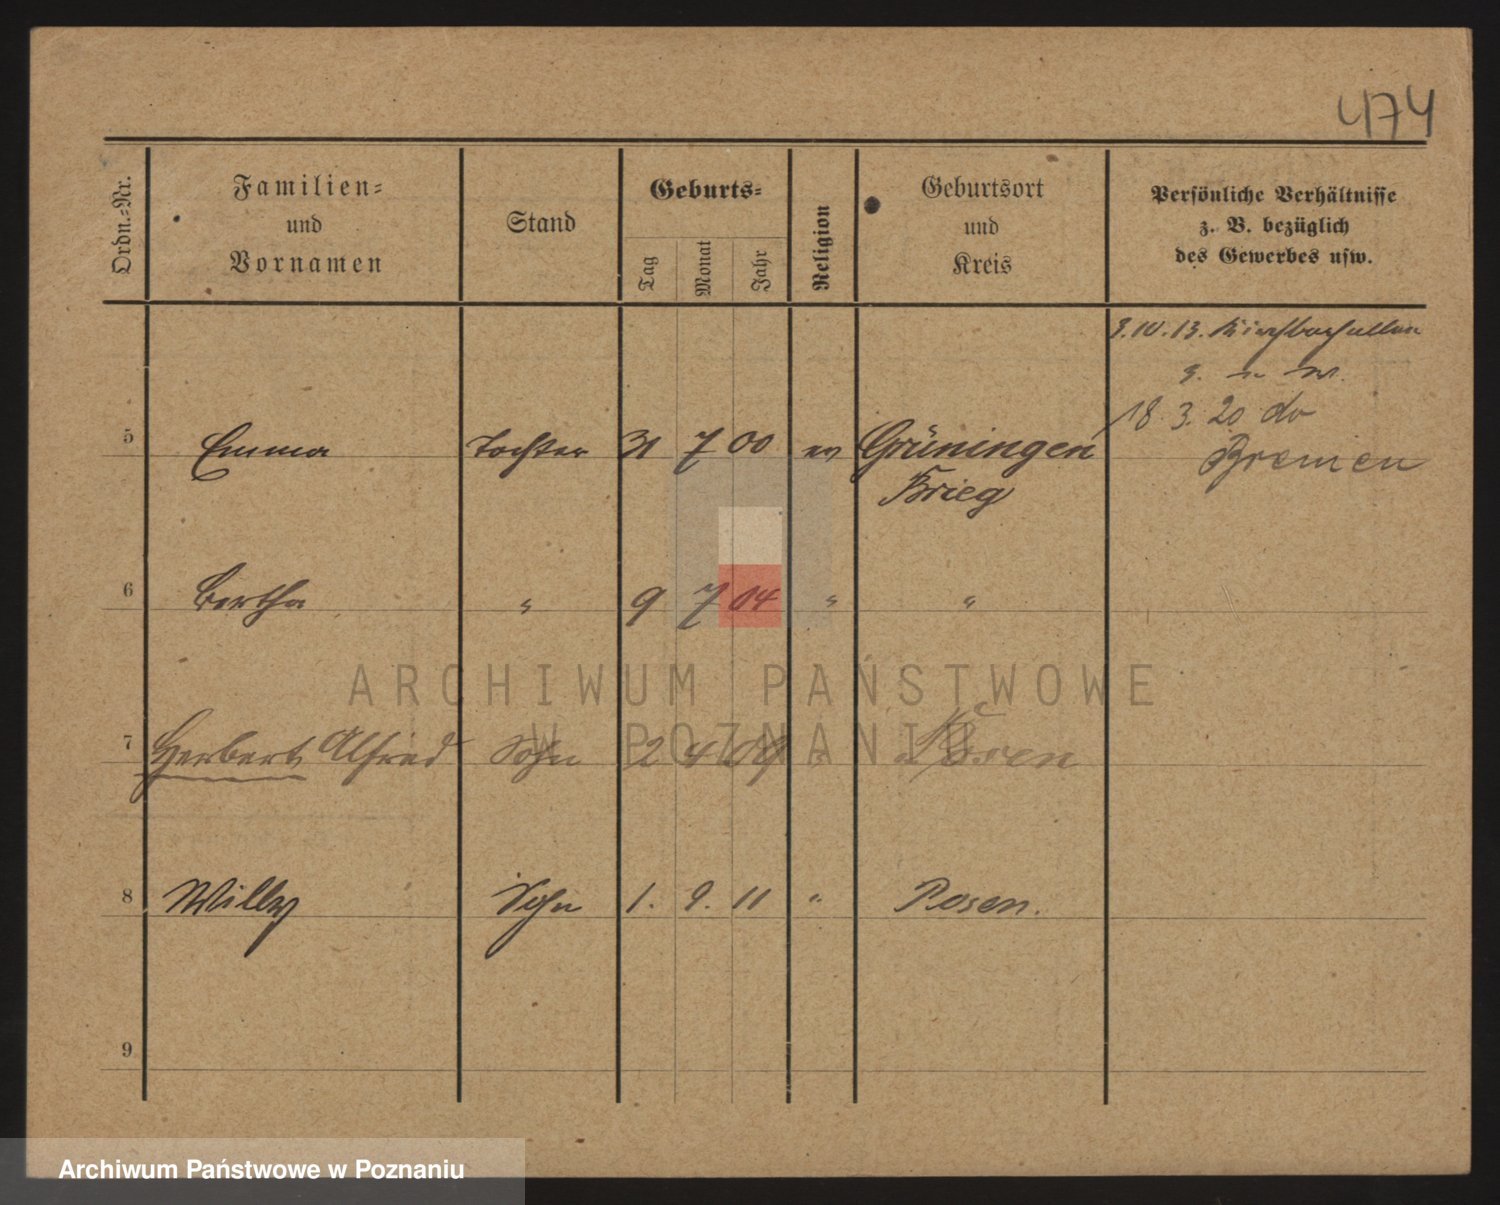 474
Ordn.-Nr.
Familien-
und
Vornamen
Stand
Geburts-
Tag
Monat
Jahr
Religion
Geburtsort
und
Kreis
Persönliche Verhältnisse
z. B. bezüglich
des Gewerbes usw.
3.10.13.
18. 3. 20 do
Bremen
5 Emma Tochter 31 7 00 ev Grüningen
Brieg
6 Bertha " 9 7 04 " "
7 Herbert Alfred Sohn 2 4 09 " Posen
8 Willy Sohn 1. 9. 11 " Posen.
9
ARCHIWUM PAŃSTWOWE
W POZNANIU
Archiwum Państwowe w Poznaniu